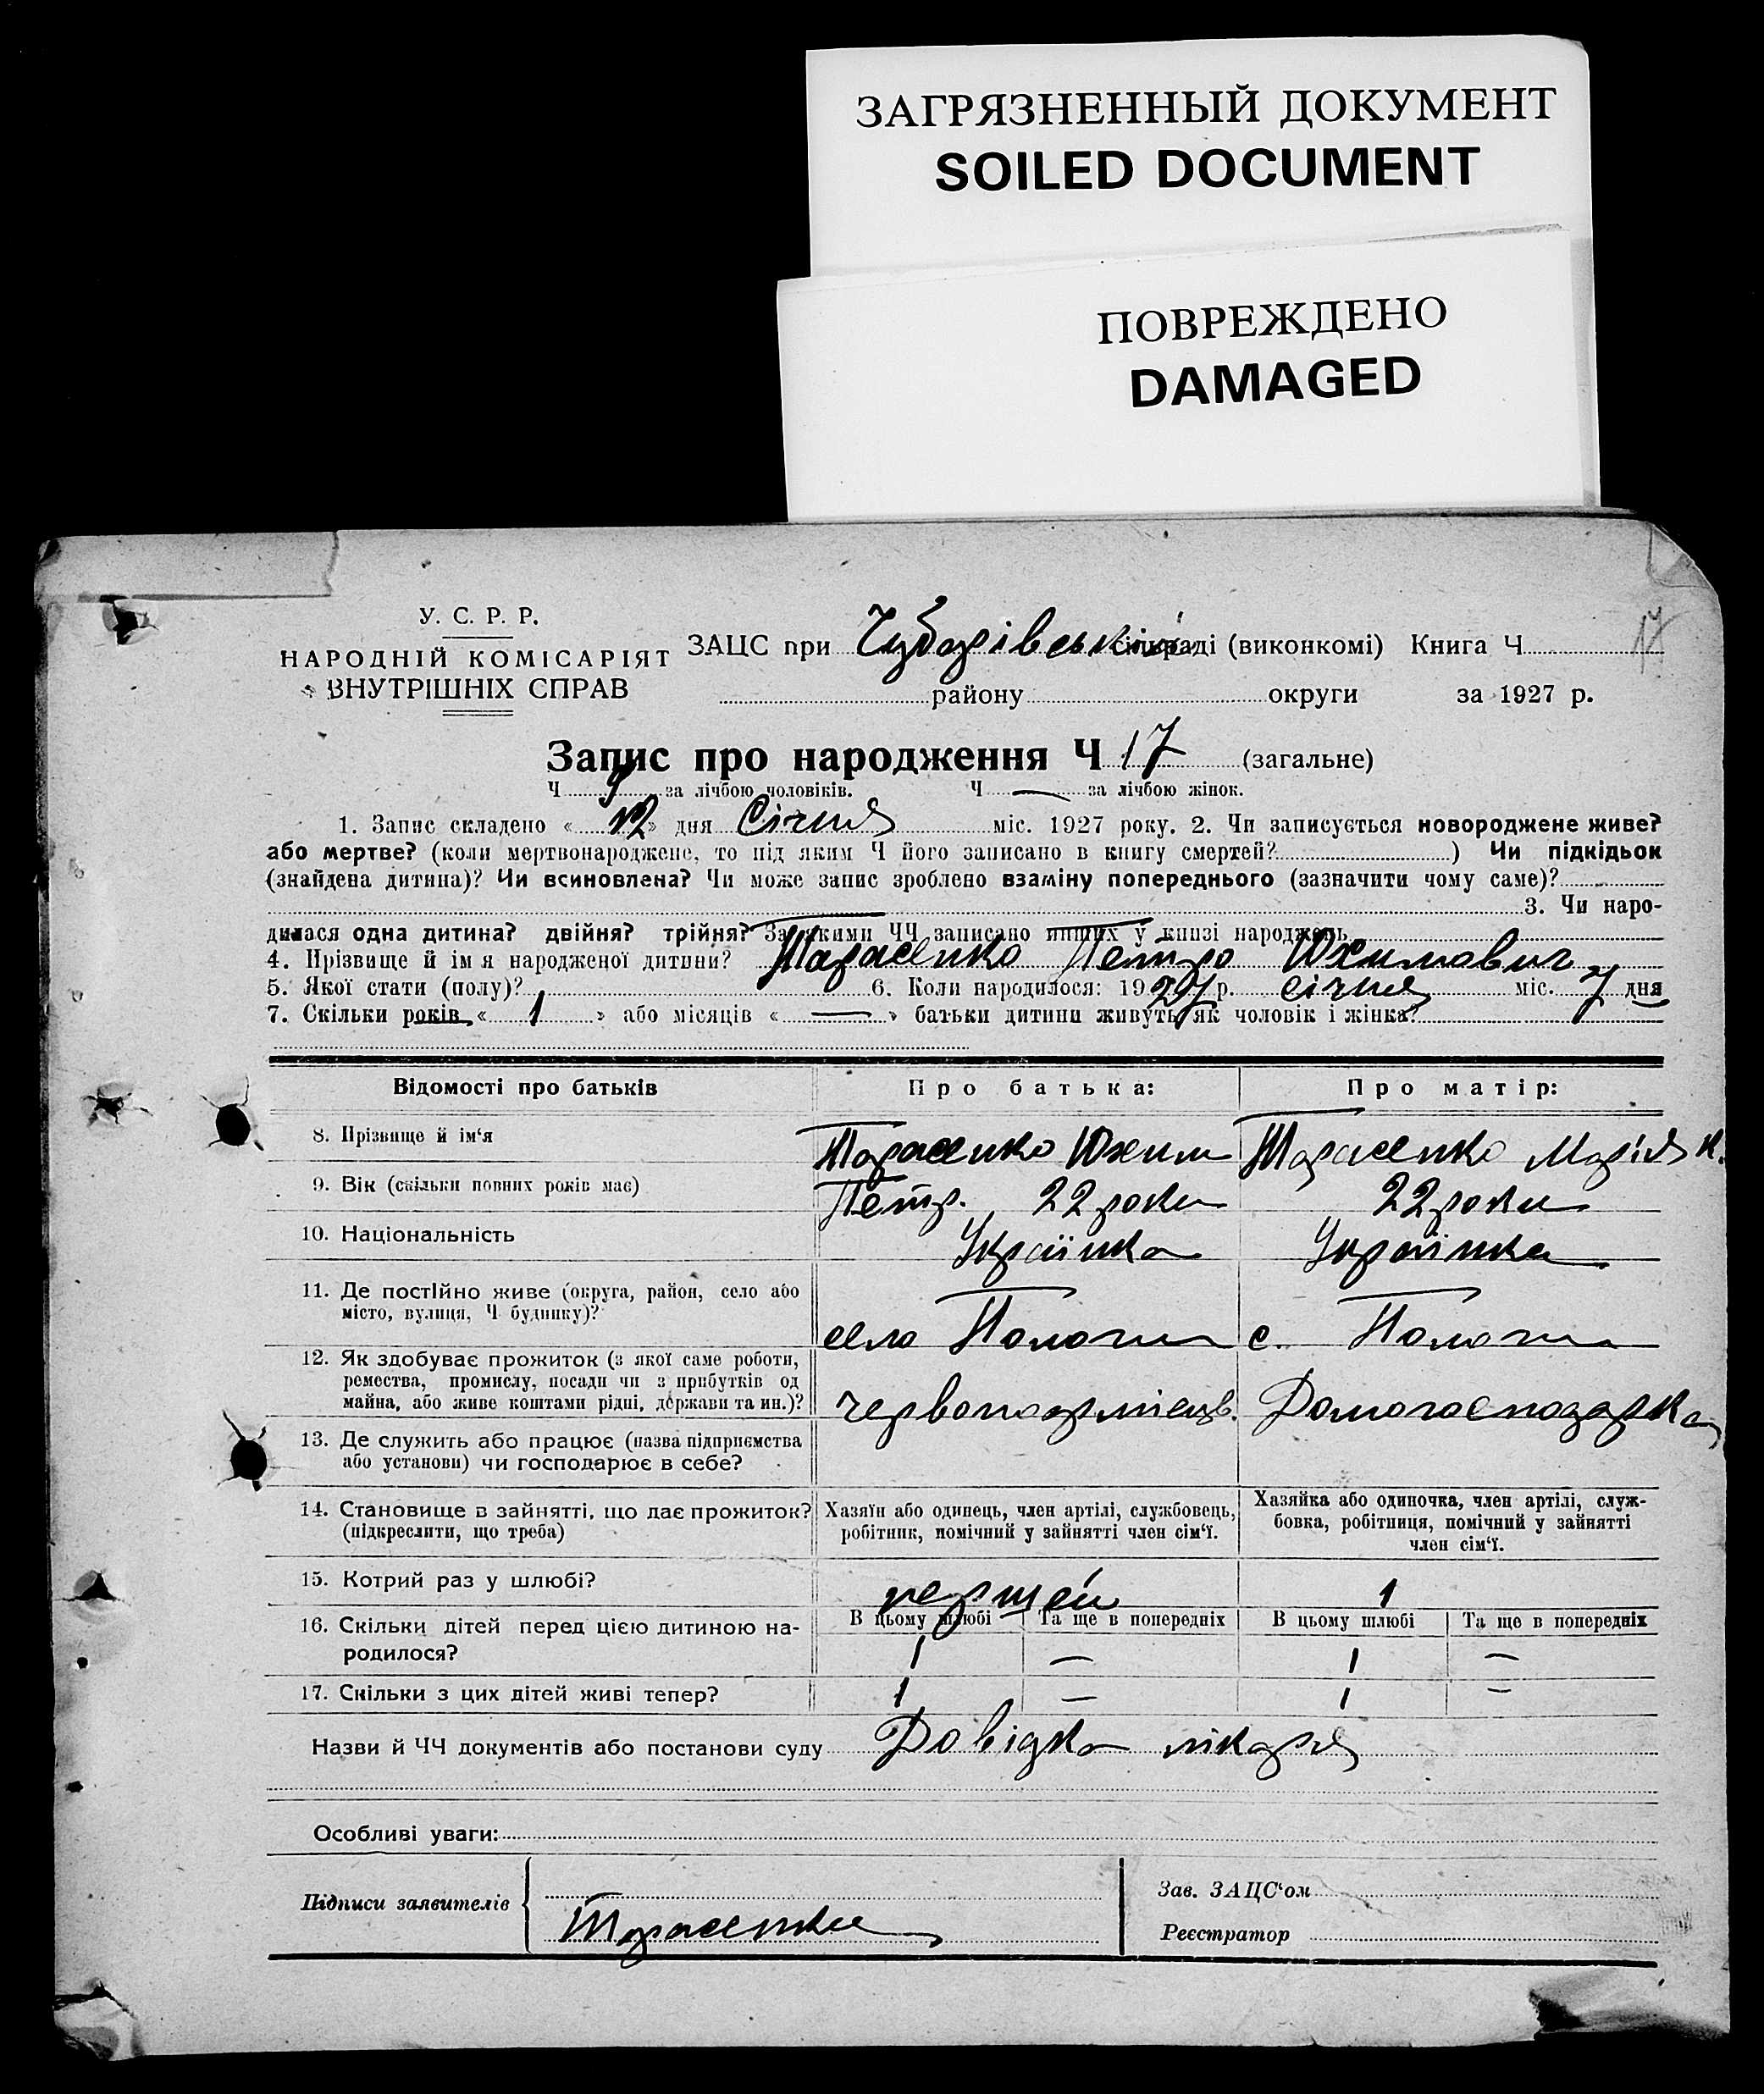 ЗАГРЯЗНЕННЫЙ ДОКУМЕНТ
SOILED DOCUMENT
ПОВРЕЖДЕНО
DAMAGED
17
У. С. Р. Р.
НАРОДНІЙ КОМІСАРІЯТ
ВНУТРІШНІХ СПРАВ
ЗАЦС при Чубарівській сільраді (виконкомі) Книга Ч
району округи за 1927 р.
Запис про народження Ч 17 (загальне)
Ч 9 за лічбою чоловіків. Ч — за лічбою жінок.
1. Запис складено « 12 » дня Січня міс. 1927 року. 2. Чи записується новороджене живе?
або мертве? (коли мертвонароджене, то під яким Ч його записано в книгу смертей? ) Чи підкідьок
(знайдена дитина)? Чи всиновлена? Чи може запис зроблено взаміну попереднього (зазначити чому саме)?
3. Чи наро-
дилася одна дитина? двійня? трійня? За якими ЧЧ записано инших у книзі народжень
4. Прізвище й ім я народженої дитини? Тарасенко Петро Юхимович
5. Якої стати (полу)? 6. Коли народилося: 1927 р. січня міс. 7 дня
7. Скільки років « 1 » або місяців « — » батьки дитини живуть як чоловік і жінка?
Відомості про батьків Про батька: Про матір:
8. Прізвище й ім‘я Тарасенко Юхим Тарасенко Марія К.
9. Вік (скільки повних років має) Петр. 22 роки 22 роки
10. Національність Українка Українка
11. Де постійно живе (округа, район, село або
місто, вулиця, Ч будинку)? село Пологи с. Пологи
12. Як здобуває прожиток (з якої саме роботи,
ремества, промислу, посади чи з прибутків од
майна, або живе коштами рідні, держави та ин.)? червоноармієцв. Домогосподарка
13. Де служить або працює (назва підприємства
або установи) чи господарює в себе?
14. Становище в зайнятті, що дає прожиток?
(підкреслити, що треба)
Хазяїн або одинець, член артілі, службовець,
робітник, помічний у зайнятті член сім‘ї.
Хазяйка або одиночка, член артілі, служ-
бовка, робітниця, помічний у зайнятті
член сім‘ї.
15. Котрий раз у шлюбі? першей 1
В цьому шлюбі Та ще в попередніх В цьому шлюбі Та ще в попередніх
16. Скільки дітей перед цією дитиною на-
родилося? 1 — 1 —
17. Скільки з цих дітей живі тепер? 1 — 1 —
Назви й ЧЧ документів або постанови суду Довідка лікаря
Особливі уваги:
Підписи заявителів
Тарасенко
Зав. ЗАЦС‘ом
Реєстратор